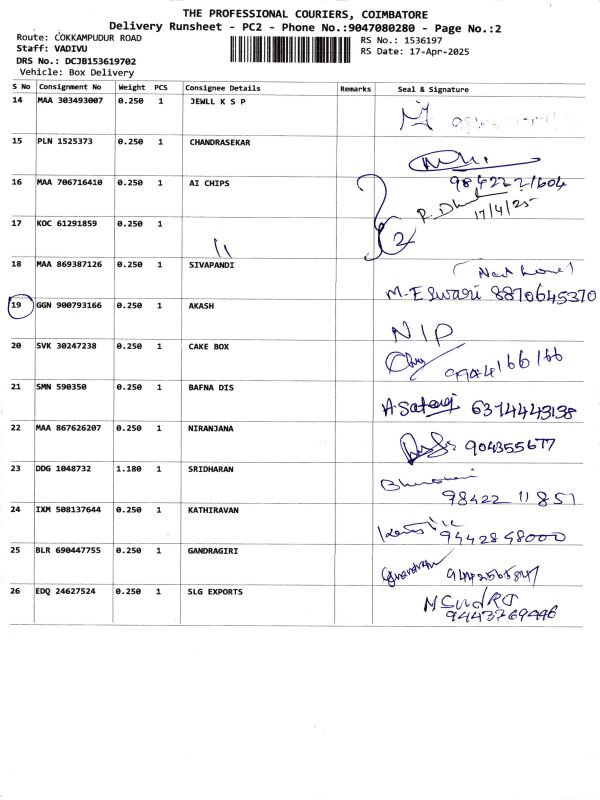 THE PROFESSIONAL COURIERS, COIMBATORE
Delivery Runsheet - PC2 - Phone No.:9047080280 - Page No.:2
Route: COKKAMPUDUR ROAD
RS No.: 1536197
Staff: VADIVU
RS Date: 17-Apr-2025
DRS No.: DCJB153619702
Vehicle: Box Delivery
S No Consignment No Weight PCS Consignee Details Remarks Seal & Signature
14 MAA 303493007 0.250 1 JEWLL K S P
15 PLN 1525373 0.250 1 CHANDRASEKAR
16 MAA 706716410 0.250 1 AI CHIPS 98422 21604
17/4/25
17 KOC 61291859 0.250 1 2
"
18 MAA 869387126 0.250 1 SIVAPANDI
M-Eswari 8870645370
19 GGN 900793166 0.250 1 AKASH
NIP
20 SVK 30247238 0.250 1 CAKE BOX
21 SMN 590350 0.250 1 BAFNA DIS
6374443138
22 MAA 867626207 0.250 1 NIRANJANA
904355677
23 DDG 1048732 1.180 1 SRIDHARAN
98422 11851
24 IXM 508137644 0.250 1 KATHIRAVAN
9442848000
25 BLR 690447755 0.250 1 GANDRAGIRI
26 EDQ 24627524 0.250 1 SLG EXPORTS
9443769446